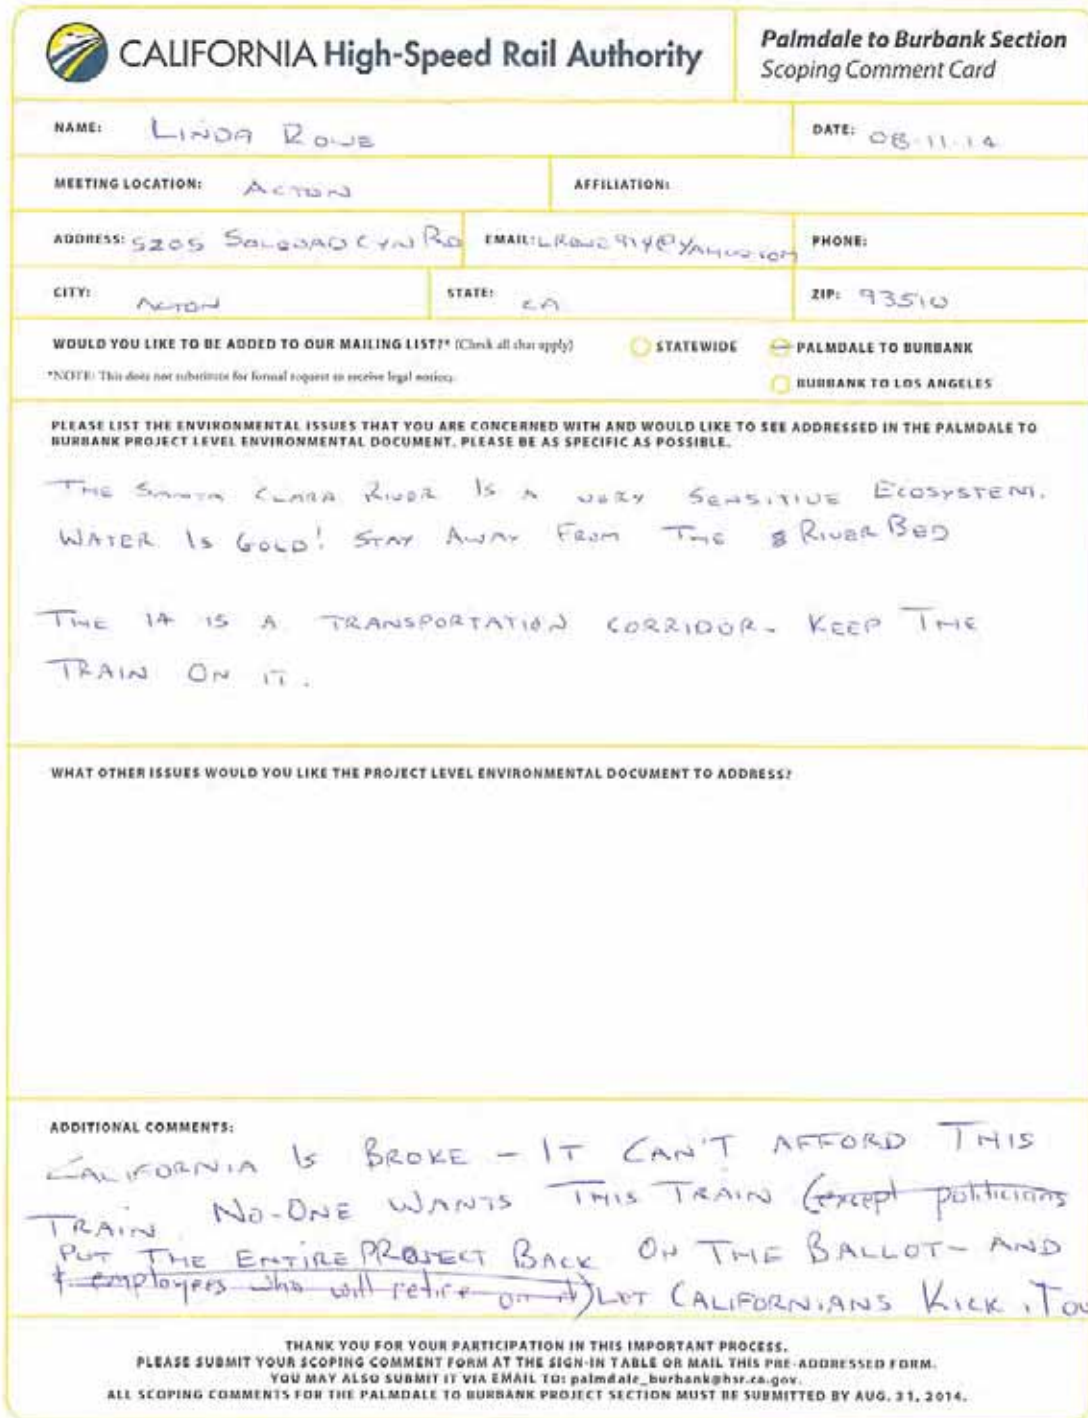 CALIFORNIA High-Speed Rail Authority
Palmdale to Burbank Section
Scoping Comment Card
NAME: LINDA ROWE
DATE: 08-11-14
MEETING LOCATION: ACTON
AFFILIATION:
ADDRESS: 5205 SOLEDAD CYN RD
EMAIL:
PHONE:
CITY: ACTON
STATE: CA
ZIP: 93510
WOULD YOU LIKE TO BE ADDED TO OUR MAILING LIST?* (Check all that apply)
STATEWIDE
PALMDALE TO BURBANK
*NOTE: This does not substitute for formal request to receive legal notices.
BURBANK TO LOS ANGELES
PLEASE LIST THE ENVIRONMENTAL ISSUES THAT YOU ARE CONCERNED WITH AND WOULD LIKE TO SEE ADDRESSED IN THE PALMDALE TO
BURBANK PROJECT LEVEL ENVIRONMENTAL DOCUMENT. PLEASE BE AS SPECIFIC AS POSSIBLE.
THE SANTA CLARA RIVER IS A VERY SENSITIVE ECOSYSTEM.
WATER IS GOLD! STAY AWAY FROM THE RIVER BED
THE 14 IS A TRANSPORTATION CORRIDOR - KEEP THE
TRAIN ON IT.
WHAT OTHER ISSUES WOULD YOU LIKE THE PROJECT LEVEL ENVIRONMENTAL DOCUMENT TO ADDRESS?
ADDITIONAL COMMENTS:
CALIFORNIA IS BROKE - IT CAN'T AFFORD THIS
TRAIN. NO-ONE WANTS THIS TRAIN (except politicians
PUT THE ENTIRE PROJECT BACK ON THE BALLOT - AND
& employees who will retire on it) LET CALIFORNIANS KICK iT OU
THANK YOU FOR YOUR PARTICIPATION IN THIS IMPORTANT PROCESS.
PLEASE SUBMIT YOUR SCOPING COMMENT FORM AT THE SIGN-IN TABLE OR MAIL THIS PRE-ADDRESSED FORM.
YOU MAY ALSO SUBMIT IT VIA EMAIL TO: palmdale_burbank@hsr.ca.gov.
ALL SCOPING COMMENTS FOR THE PALMDALE TO BURBANK PROJECT SECTION MUST BE SUBMITTED BY AUG. 31, 2014.